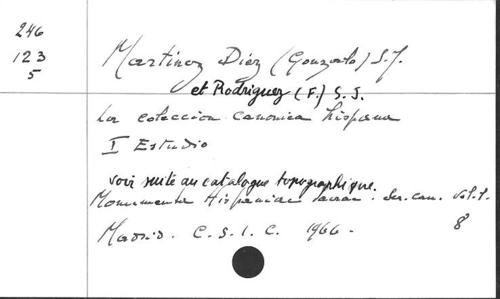 246
123
5
Martinez Diez (Gonzalo) S.J.
et Rodriguez (F.) S.J.
La coleccion canonica hispana
I Estudio
voir suite au catalogue topographique.
Monumenta Hispaniae sacra. Ser. can. Vol. 1.
Madrid. C.S.I.C. 1966. 8